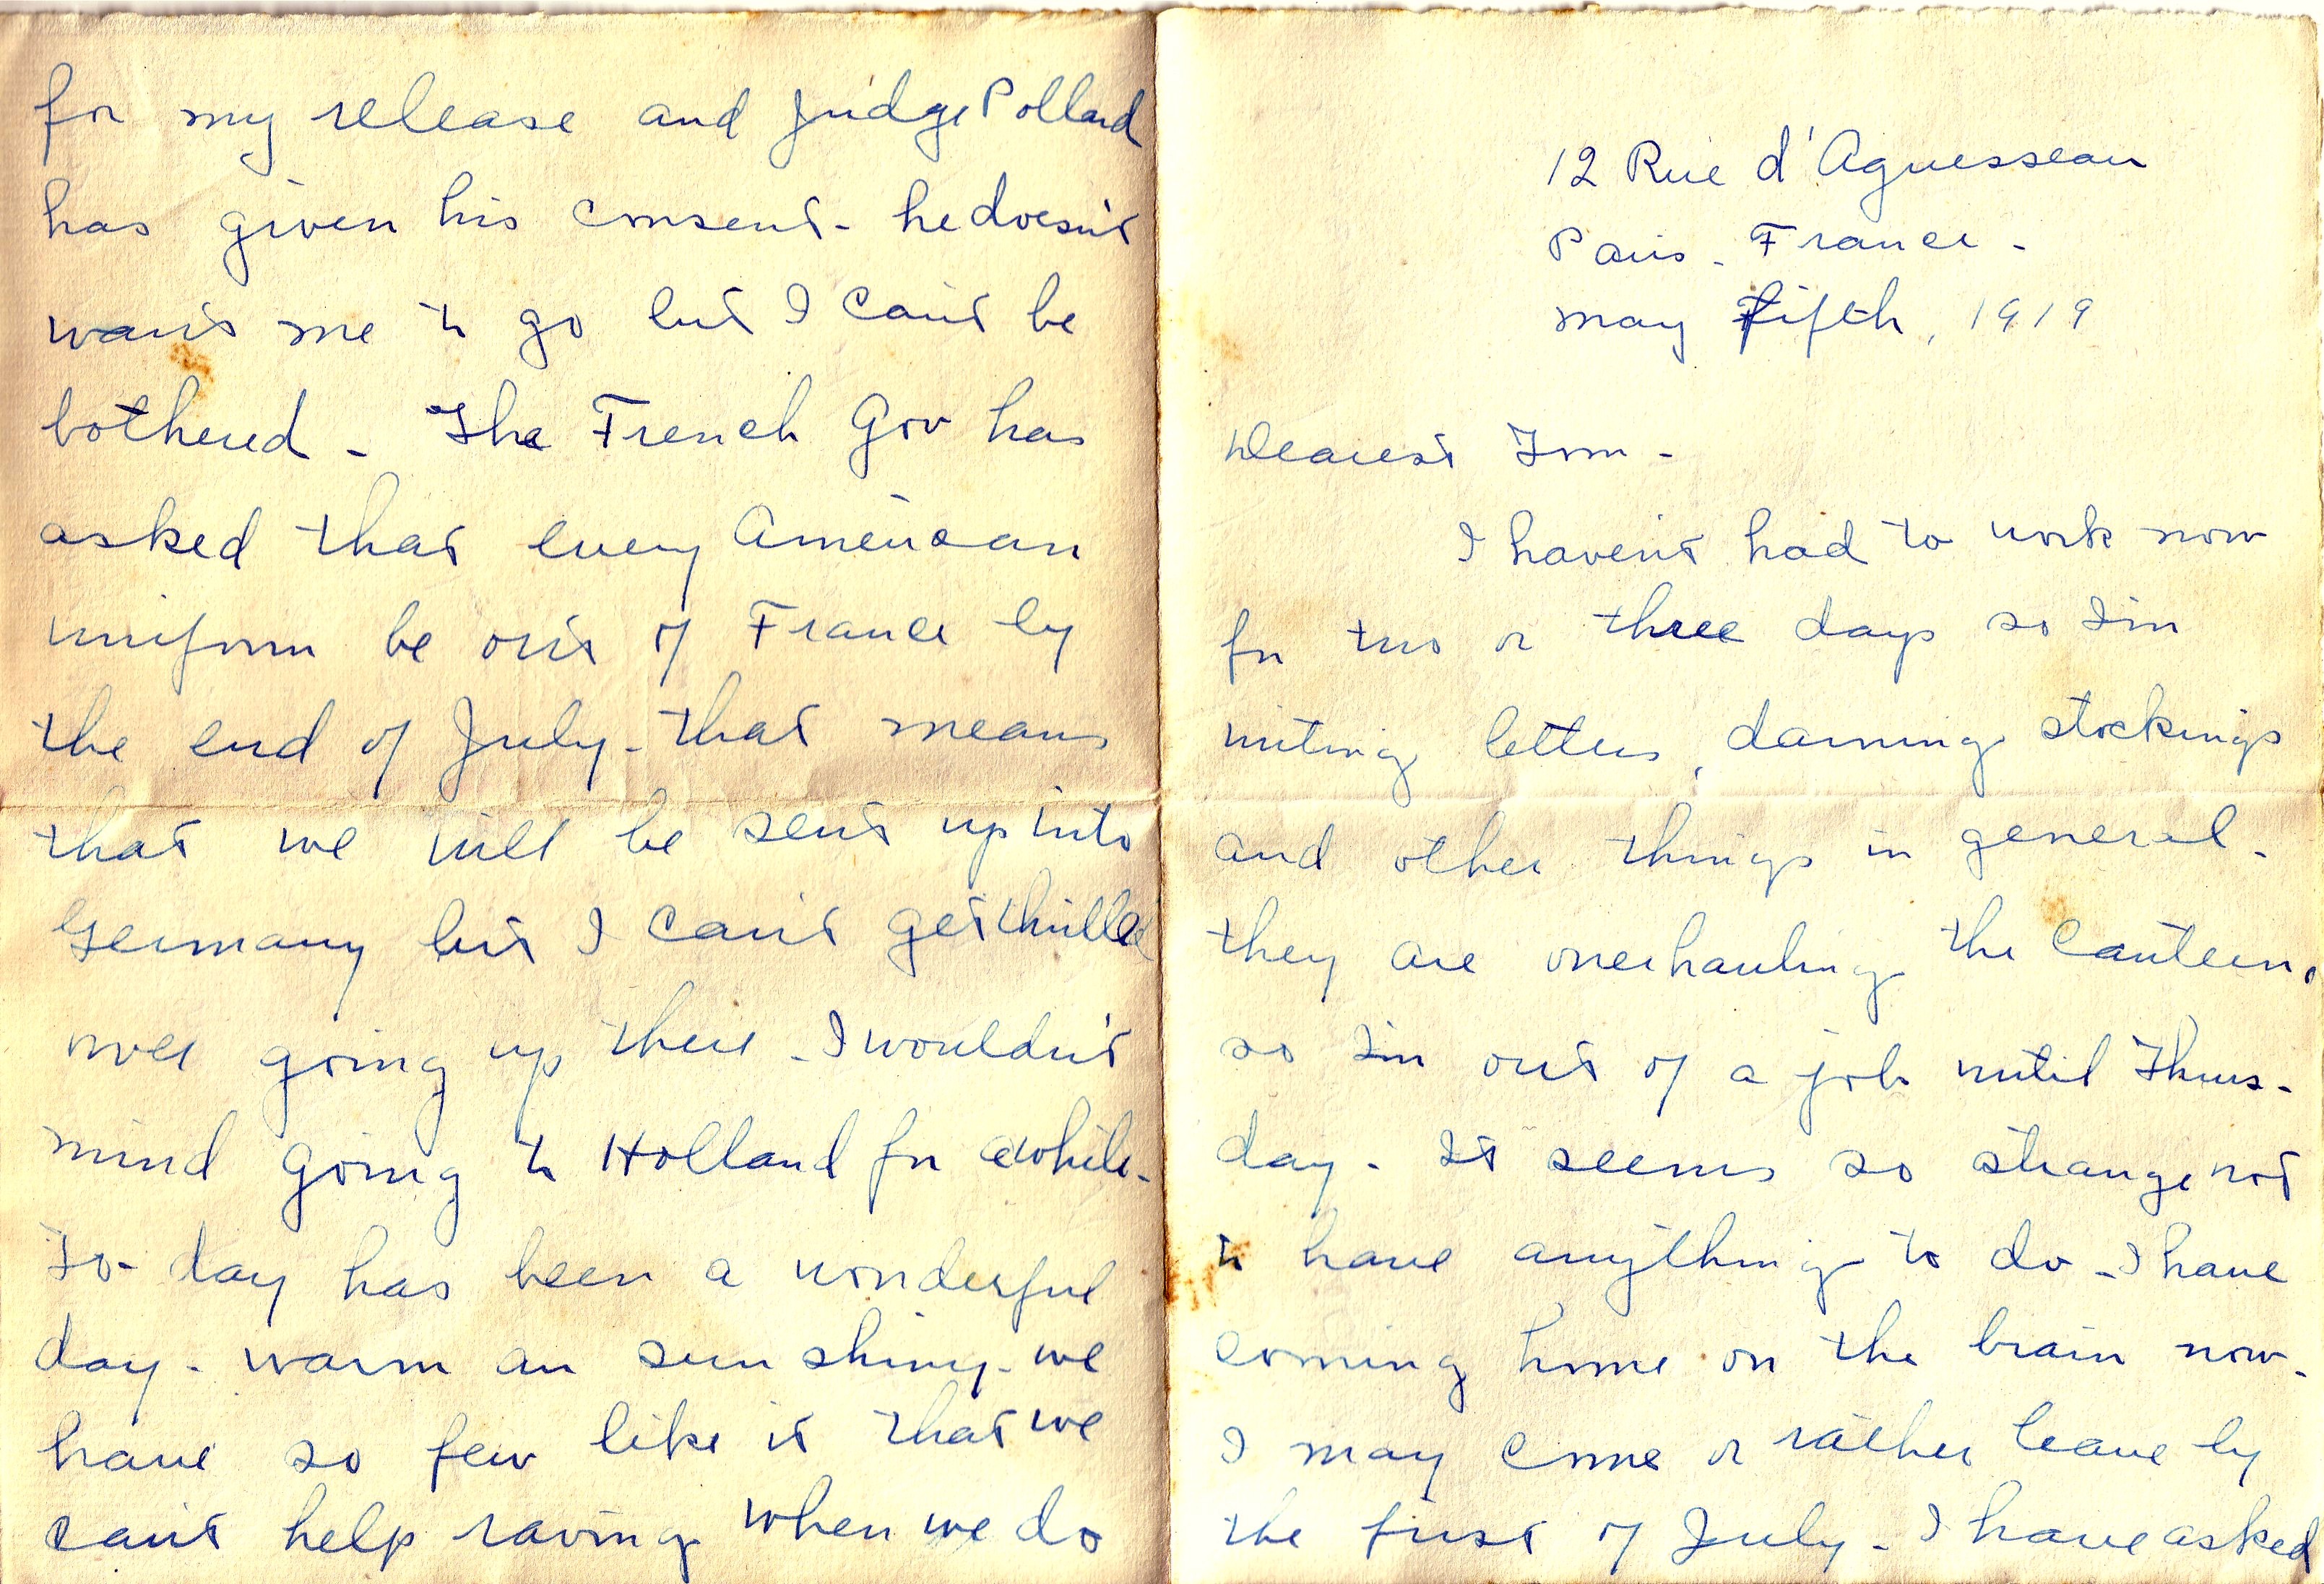 12 Rue d'Aguesseau
Paris - France -
May Fifth, 1919
Dearest Tom -
I haven't had to work now
for two or three days so I'm
writing letters, darning stockings
and other things in general -
they are overhauling the canteen,
so I'm out of a job until Thurs-
day - It seems so strange not
to have anything to do - I have
coming home on the brain now -
I may come or rather leave by
the first of July - I have asked
for my release and Judge Pollard
has given his consent - he doesn't
want me to go but I can't be
bothered - The French Gov has
asked that every American
uniform be out of France by
the end of July - that means
that we will be sent up into
Germany but I can't get thrilled
over going up there - I wouldn't
mind going to Holland for awhile -
To-day has been a wonderful
day - warm an sun shiny - we
have so few like it that we
can't help raving when we do